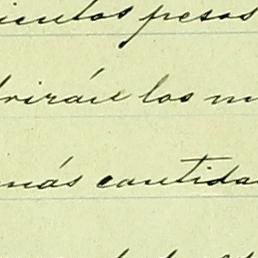 cientos pesos
brirán los m
más cantida